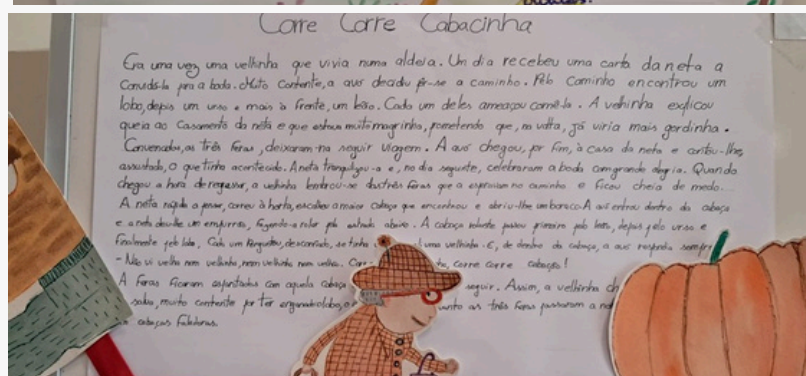 Corre Corre Cabacinha
Era uma vez uma velhinha que vivia numa aldeia. Um dia recebeu uma carta da neta a
convidá-la para a boda. Muito contente, a avó decidiu pôr-se a caminho. Pelo caminho encontrou um
lobo, depois um urso e mais à frente, um leão. Cada um deles ameaçou comê-la. A velhinha explicou
que ia ao casamento da neta e que estava muito magrinha, prometendo que, na volta, já viria mais gordinha.
Convencidos, as três feras, deixaram-na seguir viagem. A avó chegou, por fim, à casa da neta e contou-lhe,
assustada, o que tinha acontecido. A neta tranquilizou-a e, no dia seguinte, celebraram a boda com grande alegria. Quando
chegou a hora de regressar, a velhinha lembrou-se das três feras que a esperavam no caminho e ficou cheia de medo...
A neta rápida a pensar, correu à horta, escolheu a maior cabaça que encontrou e abriu-lhe um buraco. A avó entrou dentro da cabaça
e a neta deu-lhe um empurrão, fazendo-a rolar pela estrada abaixo. A cabaça rolante passou primeiro pelo leão, depois pelo urso e
finalmente pelo lobo. Cada um perguntou, desconfiado, se tinha uma velhinha. E, de dentro da cabaça, a avó respondia sempre
- Não vi velha nem velhinha, nem velhinha nem velha. corre corre cabação!
A feras ficaram espantadas com aquela cabaça seguir. Assim, a velhinha
muito contente por ter enganado o lobo, o as três feras passaram a
cabaças faladoras.